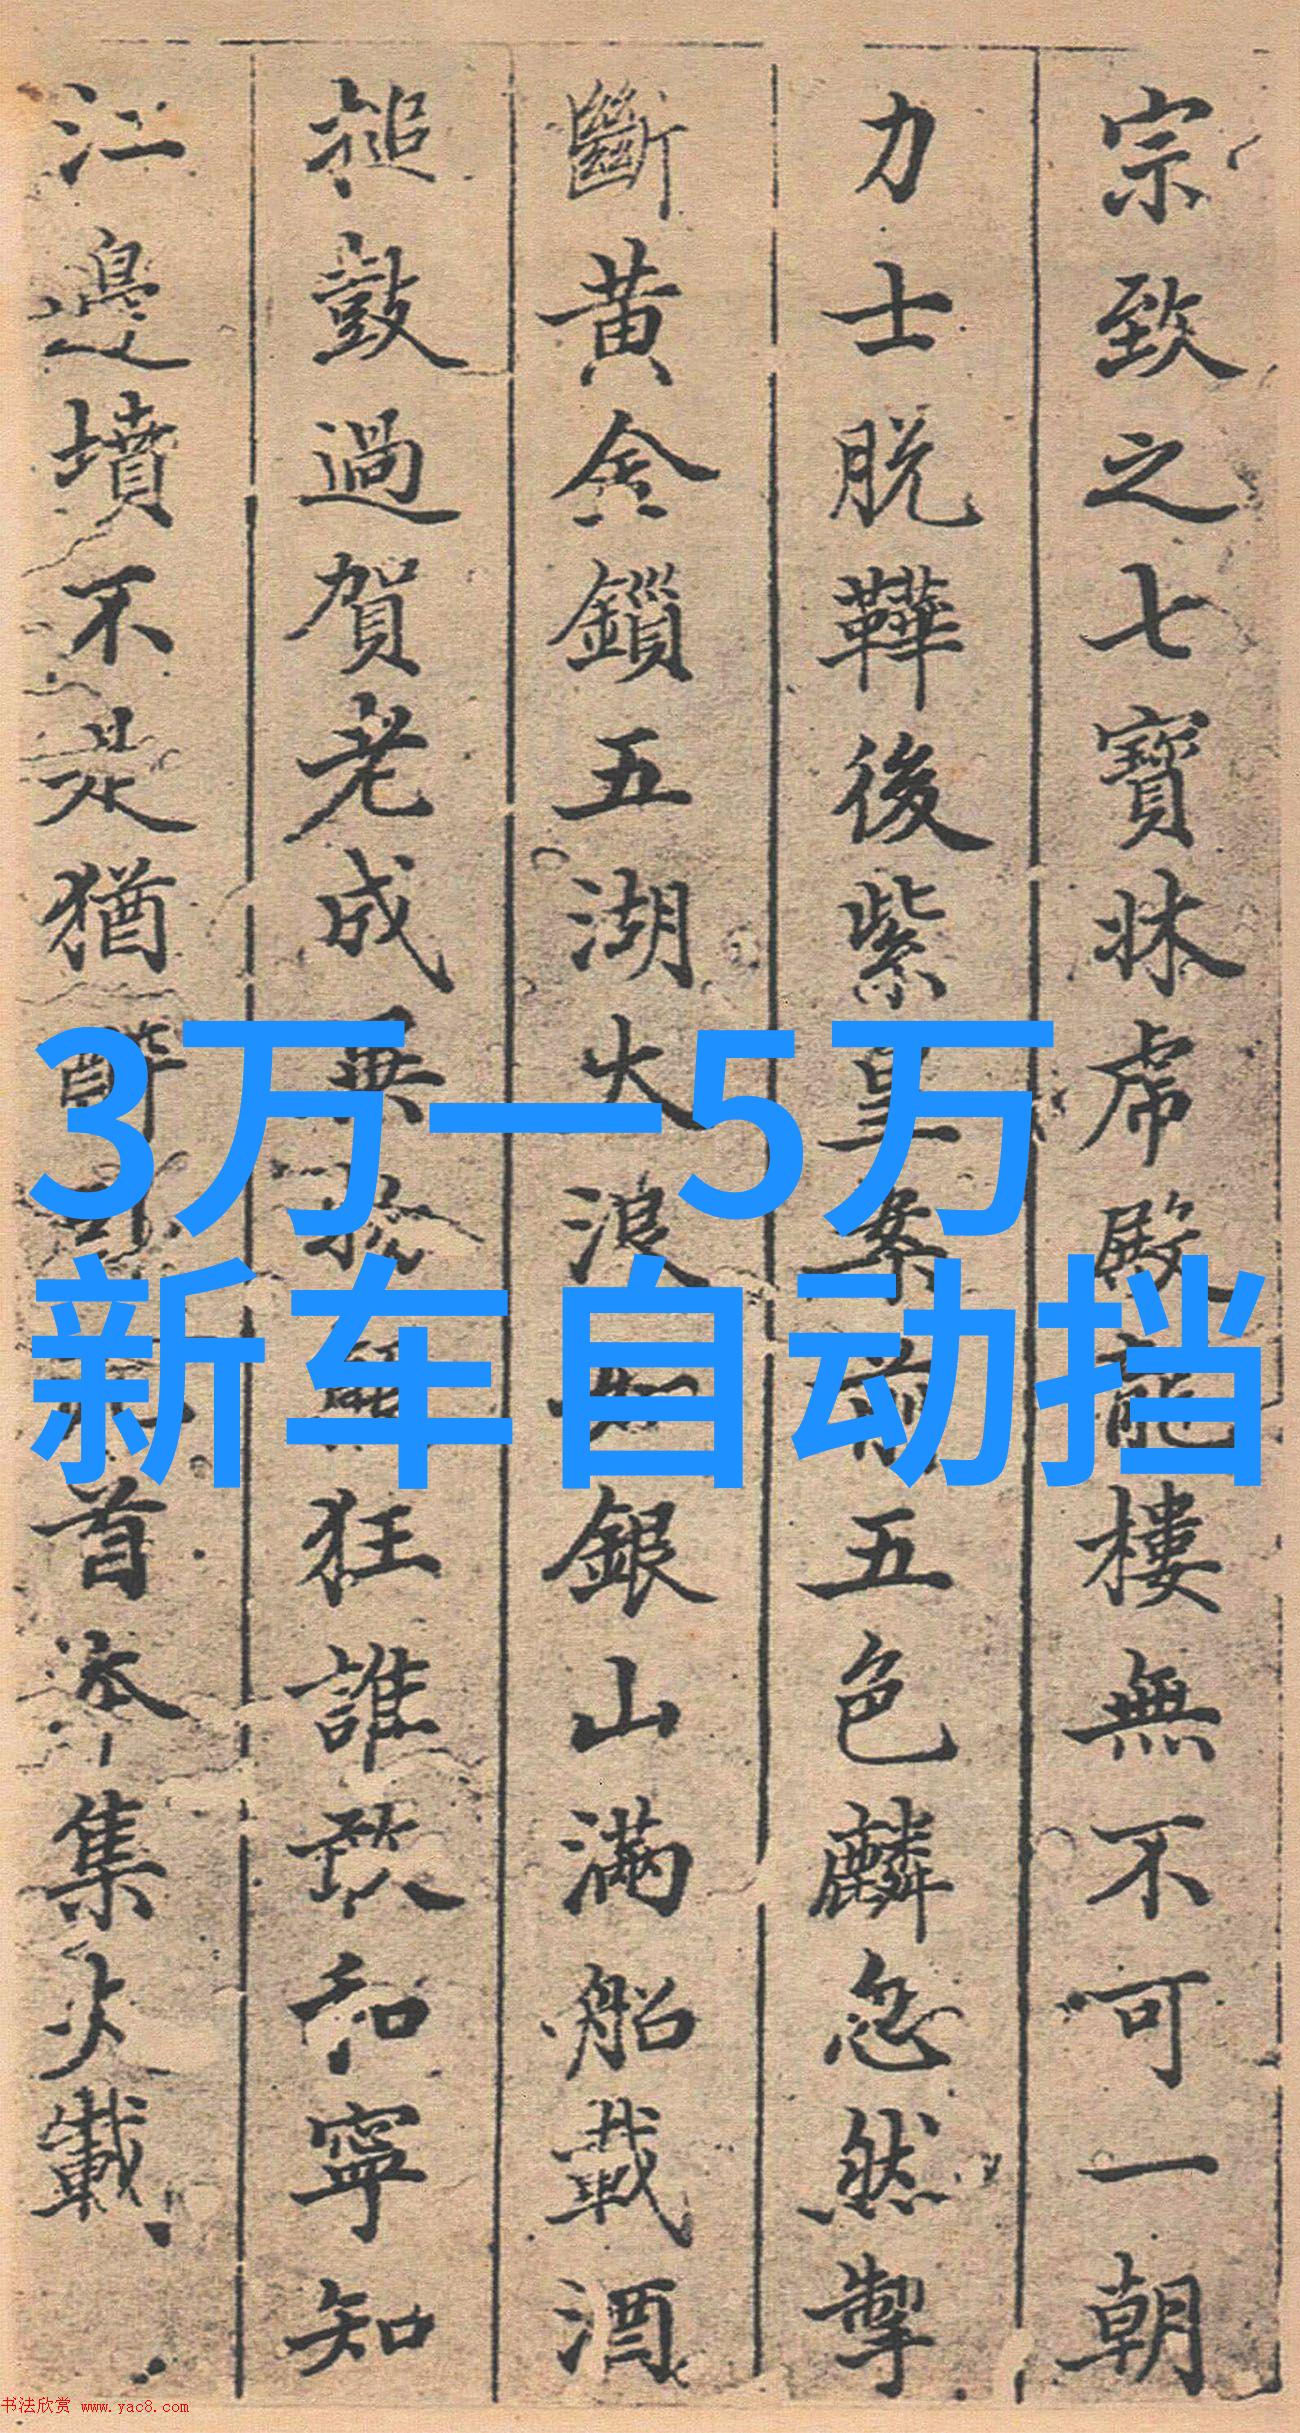 宗致之七寶牀虎殿龍樓無不可一朝
力士脱鞾後紫皇案前五色麟忽然掣
斷黄金鎖五湖大浪如銀山滿船載酒
搥鼓過賀老成異物顛狂誰敢和寧知
江邊墳不是猶醉卧首本集火載
3万一5万
新车自动挡
书法欣赏 www.yac8.com